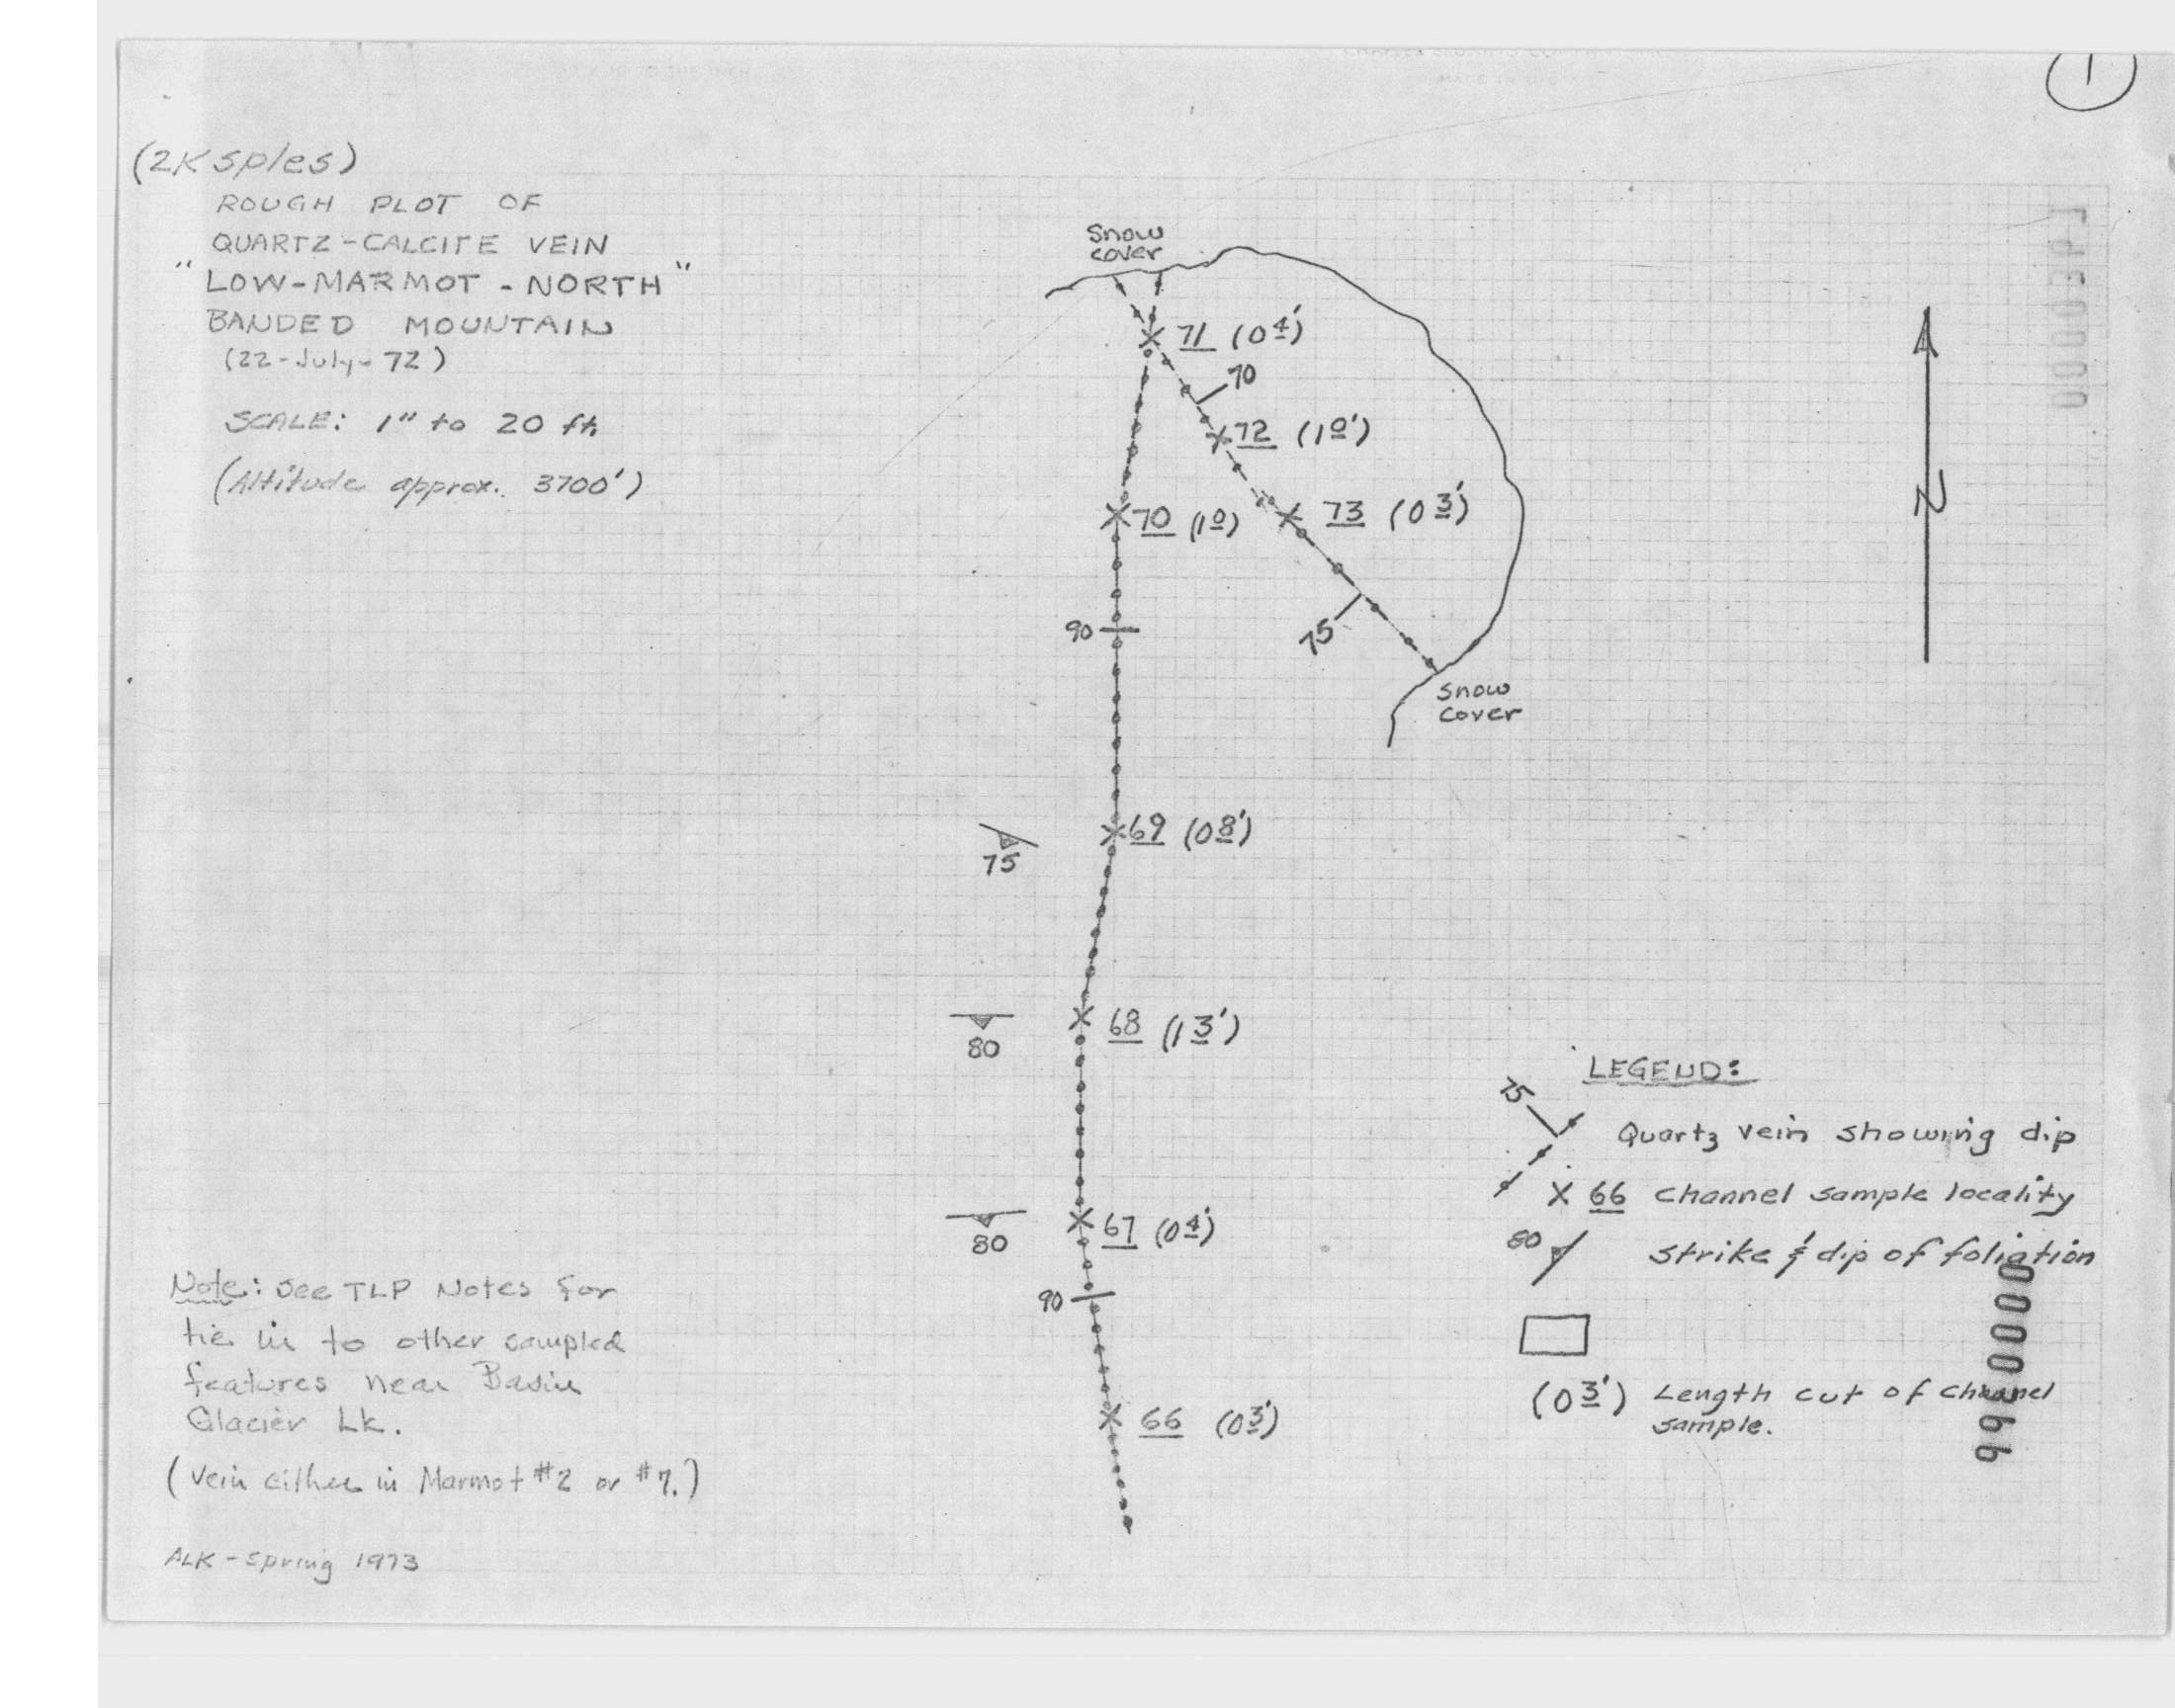 1
(2K sples)
ROUGH PLOT OF
QUARTZ-CALCITE VEIN
"LOW-MARMOT-NORTH"
BANDED MOUNTAIN
(22-July-72)
SCALE: 1" to 20 ft.
(Altitude approx. 3700')
Snow
cover
71 (04')
70
72 (10')
73 (03')
70 (10)
N
90
75
Snow
cover
69 (08')
75
68 (13')
80
67 (04')
80
90
66 (03')
LEGEND:
75
Quartz vein showing dip
X 66 channel sample locality
80 strike & dip of foliation
(03') Length cut of channel
sample.
0000366
000367
Note: See TLP Notes for
tie in to other sampled
features near Basin
Glacier Lk.
(Vein either in Marmot #2 or #7.)
ALK-Spring 1973